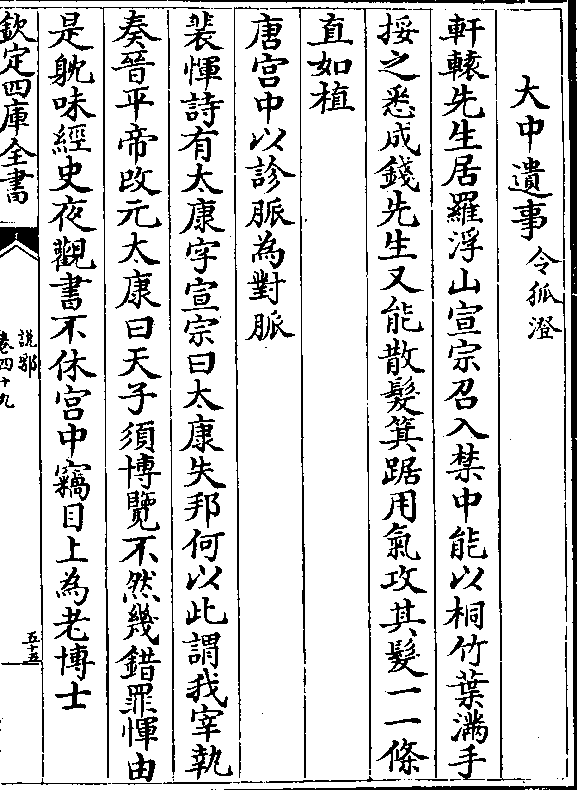 大中遺事 令狐澄
軒轅先生居羅浮山宣宗召入禁中能以桐竹葉滿手
挼之悉成錢先生又能散髮箕踞用氣攻其髮一一條
直如植
唐宫中以診脈為對脈
裴惲詩有太康字宣宗曰太康失邦何以此謂我宰執
奏晉平帝改元太康曰天子須博覽不然幾錯罪惲由
是躭味經史夜觀書不休宫中竊目上為老博士
欽定四庫全書
說郛
卷四十九
五十五